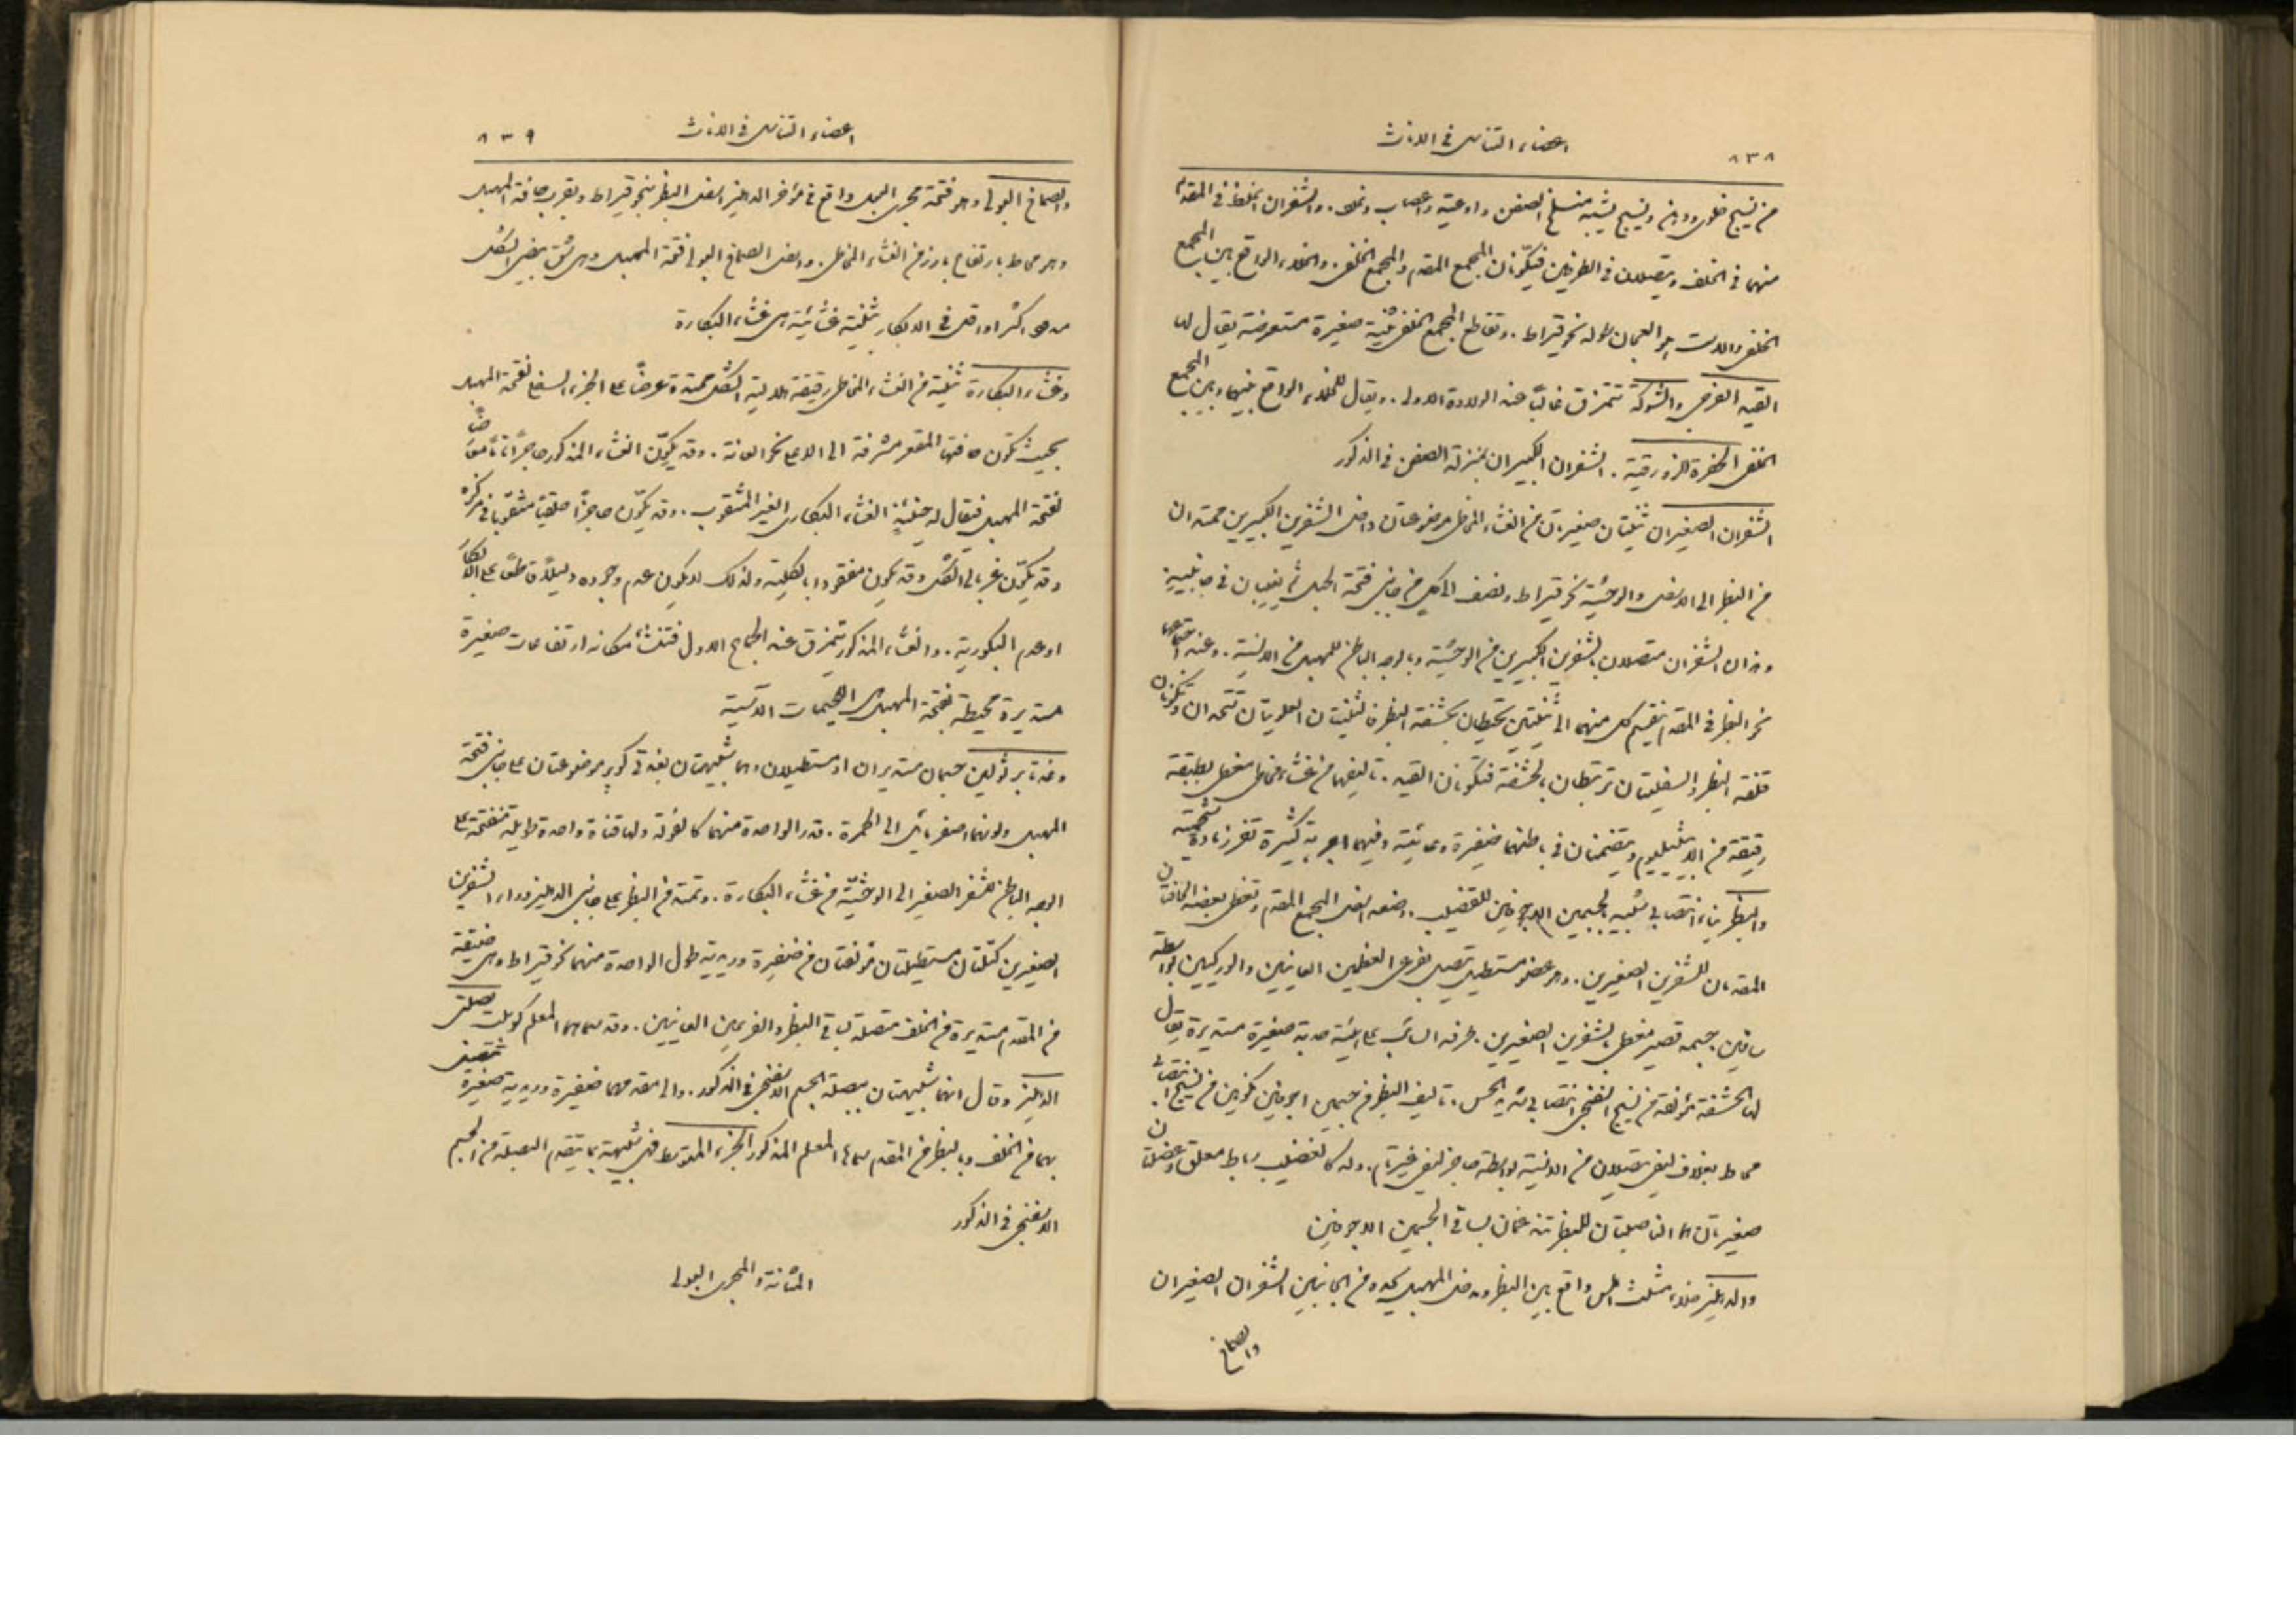 ٨٣٨
اعضاء التناسل في الاناث
من نسيج خلوي ودهن ونسيج يشبه منسلخ الصفن واوعية واعصاب وغدد. والشفران اغلظ في المقدم
منهما في الخلف ويتصلان في الطرفين فيكوّنان المجمع المقدم والمجمع الخلفي. والخلاء الواقع بين المجمع
الخلفي والاست هو العجان طوله نحو قيراط. وتقاطع المجمع الخلفي ثنية صغيرة مستعرضة يقال لها
القيد الفرجي والشوكة تتمزق غالبًا عند الولادة الاولى. ويقال للخلاء الواقع بينها وبين المجمع
الخلفي الحفرة الزورقية. الشفران الكبيران بمنزلة الصفن في الذكور
الشفران الصغيران ثنيتان صغيرتان من الغشاء المخاطي موضوعتان داخل الشفرين الكبيرين ممتدتان
من البظر الى الاسفل والوحشية نحو قيراط ونصف الى كل من جانبي فتحة المهبل ثم يغيبان في جانبيه
وهذان الشفران متصلان بالشفرين الكبيرين من الوحشية وبالوجه الباطن للمهبل من الانسية. وعند اجتماعهما
نحو البظر في المقدم ينقسم كل منهما الى ثنيتين تحيطان بحشفة البظر فالثنيتان العلويتان تتحدان وتكونان
قلفة البظر والسفليتان ترتبطان بالحشفة فتكوّنان القيد. تاليفهما من غشاء مخاطي مغطى بطبقة
رقيقة من الابيثيليوم ويتضمنان في باطنهما ضفيرة وعائية وفيهما اجربة كثيرة تفرز مادة شحمية
والبظر بناء انتصابي شبيه بالجسمين الاجوفين للقضيب. وضعه اسفل المجمع المقدم وتغطي بعضه الحافتان
المقدمتان للشفرين الصغيرين. وهو عضو مستطيل متصل بفرعي العظمين العانيين والوركيين بواسطة
ساقين. جسمه قصير مغطى بالشفرين الصغيرين. طرفه السائب على هيئة حدبة صغيرة مستديرة يقال
لها الحشفة مؤلفة من نسيج اسفنجي انتصابي شديد الحس. تاليف البظر من جسمين اجوفين مكونين من نسيج انتصابي
محاط بغلاف ليفي متصلان من الانسية بواسطة حاجز ليفي غير تام. وله كالقضيب رباط معلق وعضلتان
صغيرتان هما الناصبتان للبظر تندغمان بساقي الجسمين الاجوفين
والدهليز خلاء مثلث املس واقع بين البظر ومدخل المهبل يحده من الجانبين الشفران الصغيران
والصماخ
اعضاء التناسل في الاناث
٨٣٩
والصماخ البولي وهو فتحة مجرى البول واقع في مؤخر الدهليز اسفل البظر بنحو قيراط وبقرب حافة المهبل
وهو محاط بارتفاع بارز من الغشاء المخاطي. واسفل الصماخ البولي فتحة المهبل وهي شق بيضي الشكل
مسدود اكثر او اقل في الابكار بثنية غشائية هي غشاء البكارة
وغشاء البكارة ثنية من الغشاء المخاطي رقيقة هلالية الشكل ممتدة عرضًا على الجزء السفلي لفتحة المهبل
بحيث تكون حافتها المقعرة مشرفة الى الاعلى نحو العانة. وقد يكوّن الغشاء المذكور حاجزًا تامًا معترضًا
لفتحة المهبل فيقال له حينئذٍ الغشاء البكاري الغير المثقوب. وقد يكوّن حاجزًا حلقيًا مثقوبًا في مركزه
وقد يكوّن غربالي الشكل وقد يكون مفقودا بالكلية ولذلك لا يكون عدم وجوده دليلاً قاطعًا على البكارة
او عدم البكورية. والغشاء المذكور يتمزق عند الجماع الاول فتنشأ مكانه ارتفاعات صغيرة
مستديرة محيطة بفتحة المهبل هي اللحيمات الآسية
وغدتا برثولين جسمان مستديران او مستطيلان وهما شبيهتان بغدتي كوبر موضوعتان على جانبي فتحة
المهبل ولونهما اصفر مائل الى الحمرة. قدر الواحدة منهما كالفولة ولها قناة واحدة طويلة منفتحة على
الوجه الباطن للشفر الصغير الى الوحشية من غشاء البكارة. وتمتد من البظر على جانبي الدهليز وراء الشفرين
الصغيرين كتلتان مستطيلتان مؤلفتان من ضفيرة وريدية طول الواحدة منهما نحو قيراط وهي ضيقة
من المقدم مستديرة من الخلف متصلة بساقي البظر والفرعين العانيين. وقد سماهما المعلم كوبلت بصلتي
الدهليز وقال انهما شبيهتان ببصلة الجسم الاسفنجي في الذكور. والى مقدمهما ضفيرة وريدية صغيرة تتصل
بهما من الخلف وبالبظر من المقدم سماها المعلم المذكور الجزء المتوسط فهي شبيهة بما يتقدم البصلة من الجسم
الاسفنجي في الذكور
المثانة والمجرى البولي